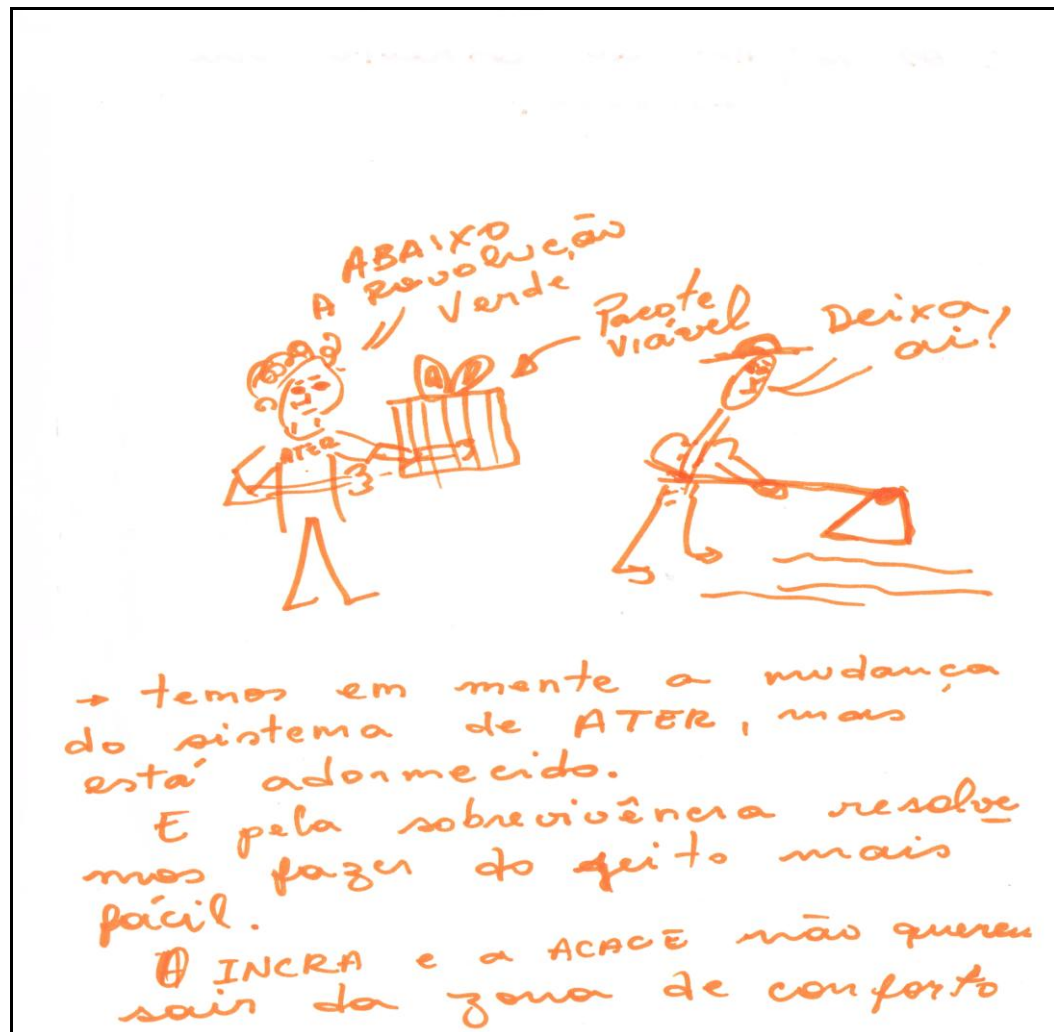 ABAIXO
A Revolução
Verde
Pacote
viável
Deixa
ai!
ATER
→ temos em mente a mudança
do sistema de ATER, mais
está adormecido.
E pela sobrevivência resolve
mos fazer do jeito mais
fácil.
O INCRA e a ACACE não querem
sair da zona de conforto